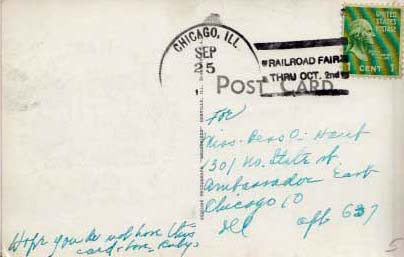 CHICAGO, ILL
SEP
25
RAILROAD FAIR
THRU OCT. 2nd
UNITED STATES
POSTAGE
CENT 1
POST CARD
For
Miss. Bess O.
1301 No. State St.
Ambassador East
Chicago 10
Ill apt 637
Hope you do not have this
card - love - Ruby